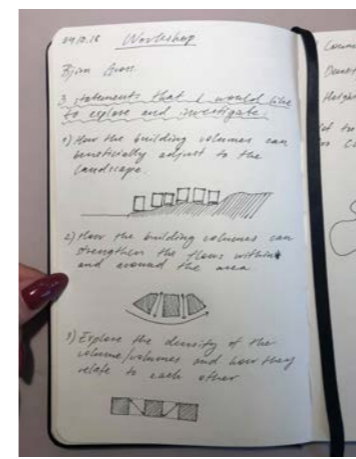 04.10.18 Workshop
3 statements that I would like
to explore and investigate.
1) How the building volumes can
beneficially adjust to the
landscape.
2) How the building volumes can
strengthen the flows within
and around the area
3) Explore the density of the
volume/volumes and how they
relate to each other